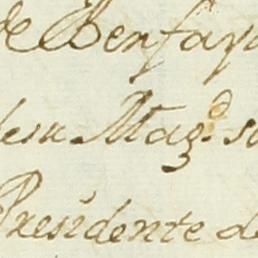 de Benfay
desu Mag.d s
Presidente de